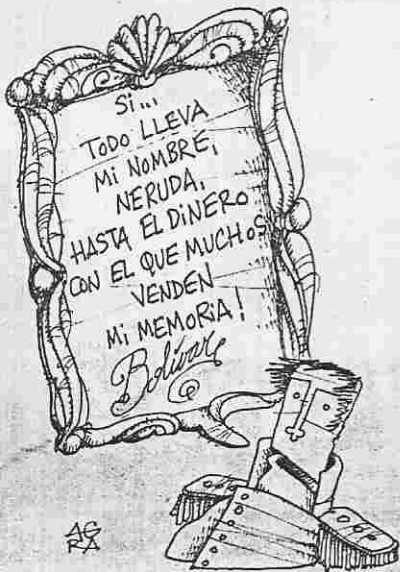 Si...
TODO LLEVA
Mi NOMBRE,
NERUDA,
HASTA EL DiNERO
CON EL QUE MUCHOS
VENDEN
Mi MEMORiA!
Bolívar
AG
RA